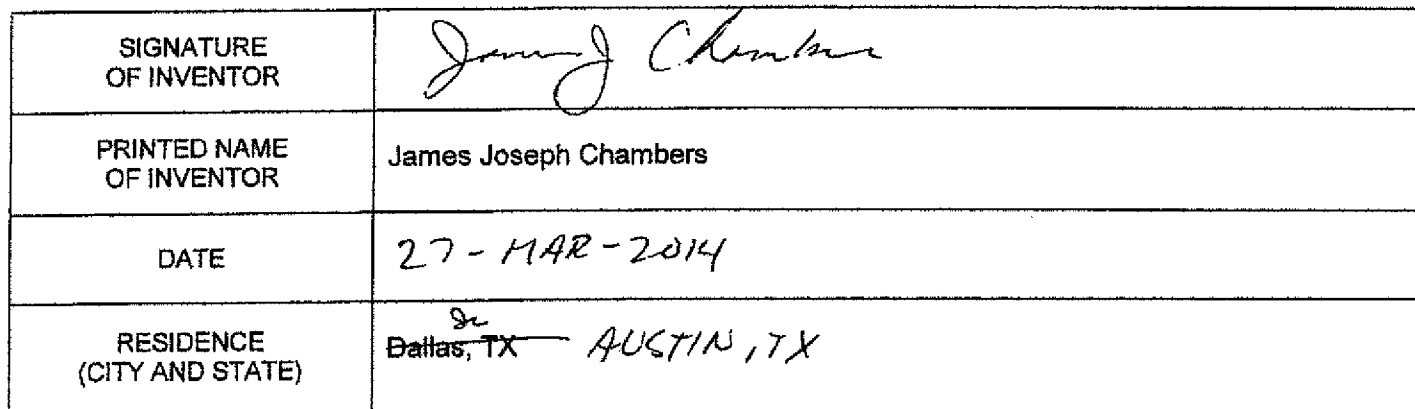 SIGNATURE
OF INVENTOR
James J Chambers
PRINTED NAME
OF INVENTOR
James Joseph Chambers
DATE
27-MAR-2014
RESIDENCE
(CITY AND STATE)
Dallas, TX AUSTIN, TX